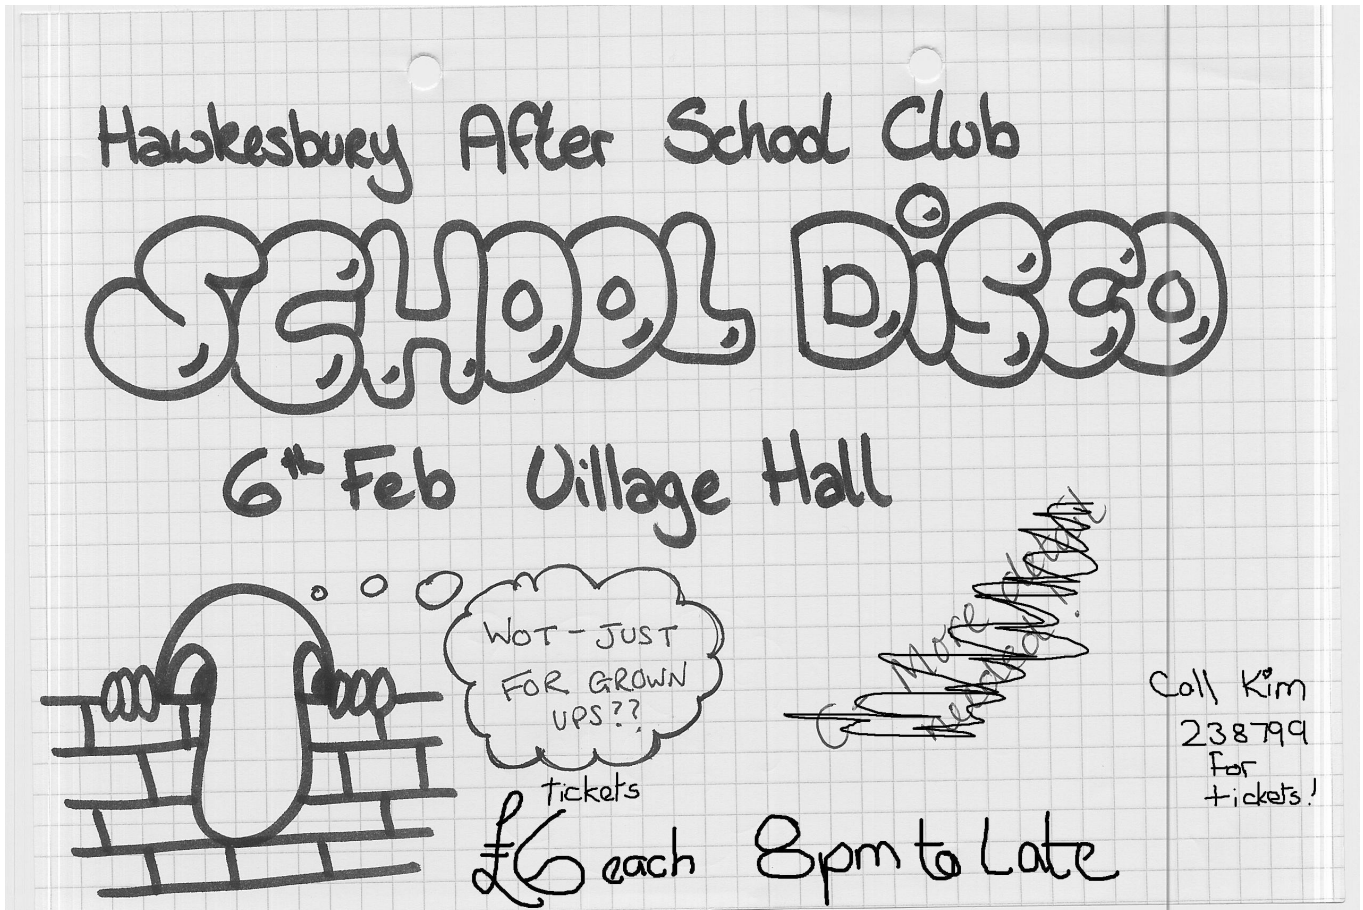 Hawkesbury After School Club
SCHOOL DiSCO
6th Feb Village Hall
WOT - JUST
FOR GROWN
UPS??
More
Call Kim
238799
For
tickets!
tickets
£6 each 8pm to Late